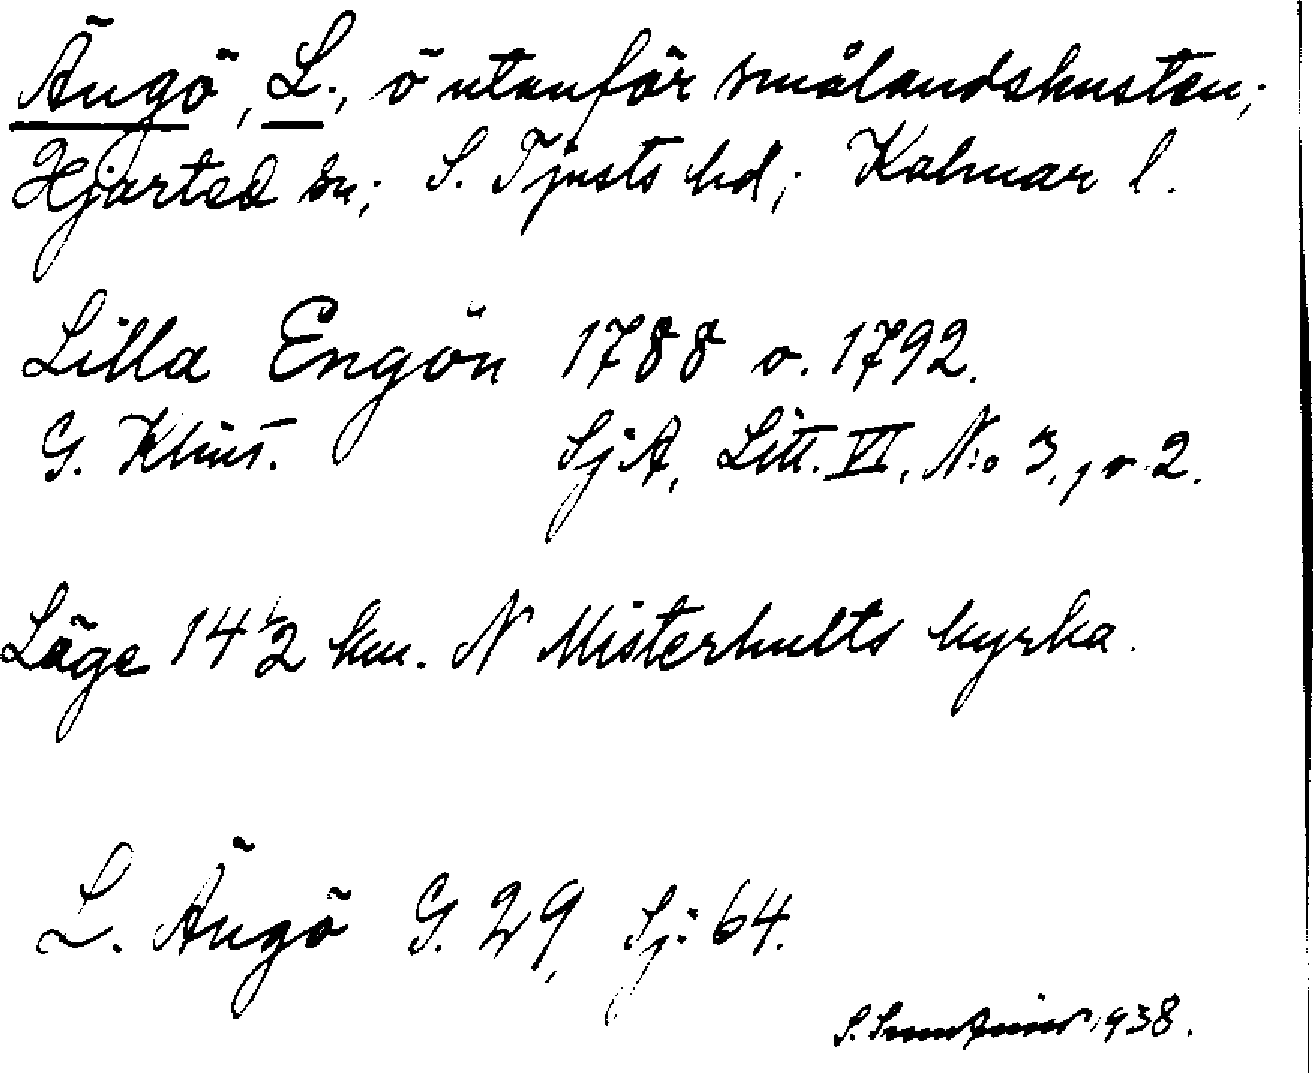 Ängö, L., ö utanför smålandskusten;
Hjorted sn; S. Tjusts hd; Kalmar l.
Lilla Engön 1788 o. 1792.
G. Klint. SjA, Litt. VI, N:o 3, 1 o 2.
Läge 14 1/2 km. N Misterhults kyrka.
L. Ängö G. 29, Sj: 64.
S. 1938.